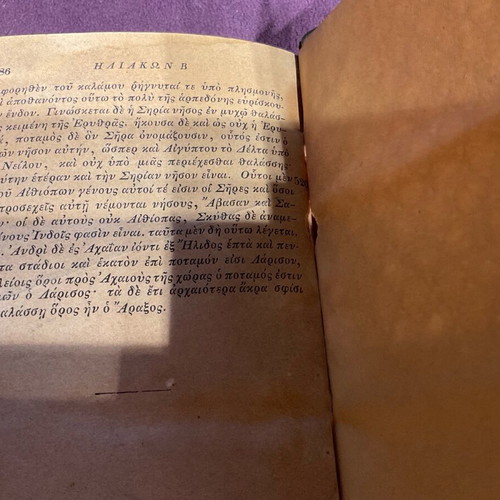 86 ΗΛΙΑΚΩΝ Β
φορηθὲν τοῦ καλάμου ῥήγνυταί τε ὑπὸ πλησμονῆς,
ἀποθανόντος οὕτω τὸ πολὺ τῆς ἁρπεδόνης εὑρίσκου-
ἔνδον. Γινώσκεται δὲ ἡ Σηρία νῆσος ἐν μυχῷ θαλάσ-
κειμένη τῆς Ἐρυθρᾶς. ἤκουσα δὲ καὶ ὡς οὐχ ἡ Ἐρυ-
ποταμὸς δὲ ὃν Σῆρα ὀνομάζουσιν, οὗτός ἐστιν ὁ
νῆσον αὐτήν, ὥσπερ καὶ Αἰγύπτου τὸ Δέλτα ὑπὸ
Νείλου, καὶ οὐχ ὑπὸ μιᾶς περιέχεσθαι θαλάσσης·
ἑτέραν καὶ τὴν Σηρίαν νῆσον εἶναι. Οὗτοι μὲν
τοῦ Αἰθιόπων γένους αὐτοί τέ εἰσιν οἱ Σῆρες καὶ ὅσοι
προσεχεῖς αὐτῇ νέμονται νήσους, Ἄβασαν καὶ Σα-
οἱ δὲ αὐτοὺς οὐκ Αἰθίοπας, Σκύθας δὲ ἀναμε-
Ἰνδοῖς φασὶν εἶναι. ταῦτα μὲν δὴ οὕτω λέγεται.
Ἀνδρὶ δὲ ἐς Ἀχαΐαν ἰόντι ἐξ Ἤλιδος ἑπτὰ καὶ πεν-
στάδιοι καὶ ἑκατὸν ἐπὶ ποταμόν εἰσι Λάρισον,
ὅροι πρὸς Ἀχαιοὺς τῆς χώρας ὁ ποταμός ἐστιν
ὁ Λάρισος· τὰ δὲ ἔτι ἀρχαιότερα ἄκρα σφίσι
θαλάσσῃ ὅρος ἦν ὁ Ἄραξος.